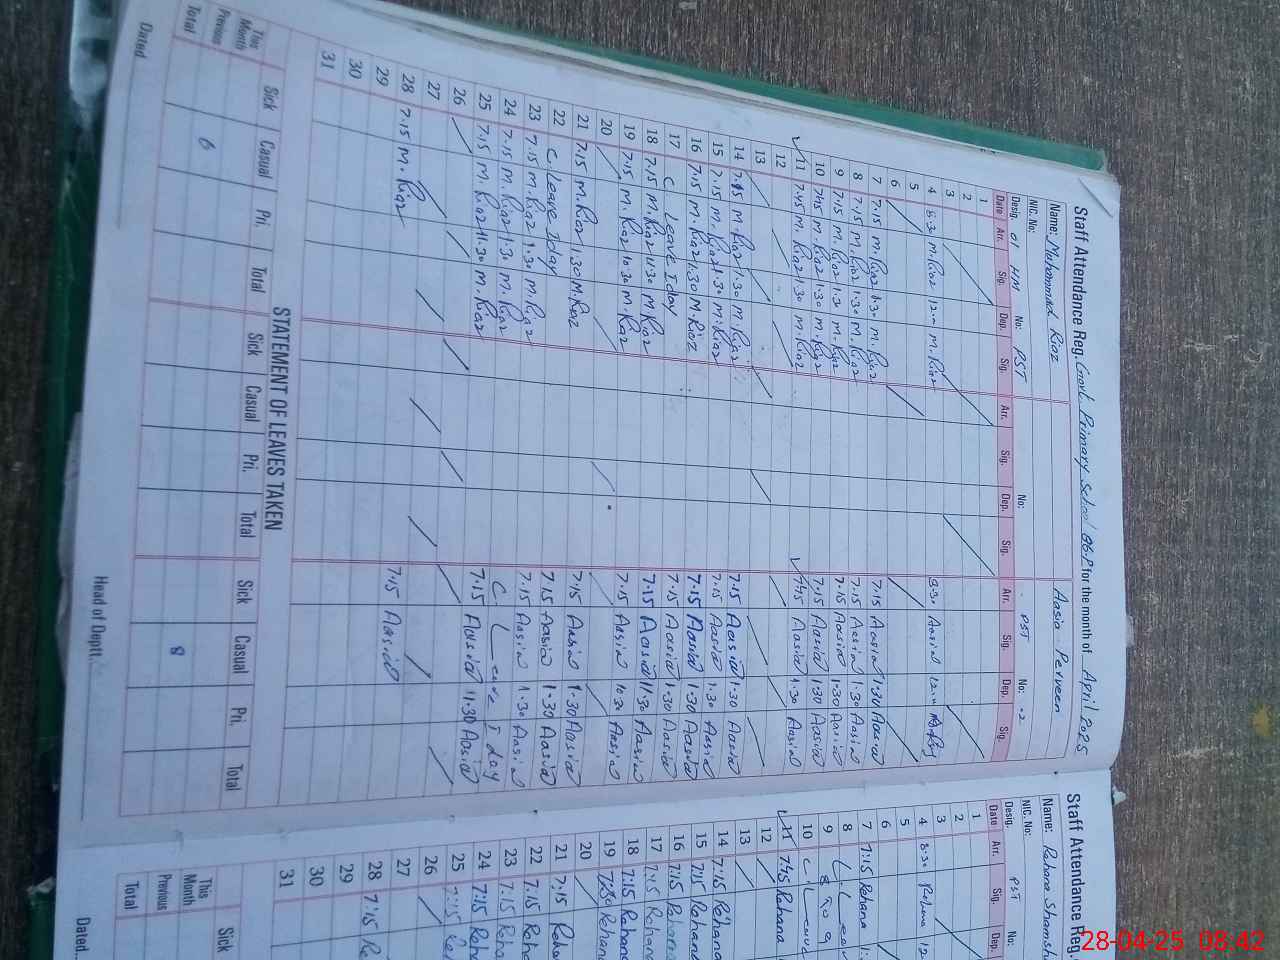 Staff Attendance Reg. Govt. Primary School for the month of April 2025
Name: Mohammad Riaz Aasia Perveen
NIC. No:
Desig. 01 HM No: PST No: PST No: 2
Date Arr. Sig. Dep. Sig. Arr. Sig. Dep. Sig. Arr. Sig. Dep. Sig.
1
2
3
4 8.30 M.Riaz 12.00 M.Riaz 8.30 Aasia 12.00
5
6
7 7.15 M.Riaz 1.30 M.Riaz 7.15 Aasia 1.30 Aasia
8 7.15 M.Riaz 1.30 M.Riaz 7.15 Aasia 1.30 Aasia
9 7.15 M.Riaz 1.30 M.Riaz 7.15 Aasia 1.30 Aasia
10 7.15 M.Riaz 1.30 M.Riaz 7.15 Aasia 1.30 Aasia
11 7.45 M.Riaz 1.30 M.Riaz 7.45 Aasia 1.30 Aasia
12
13
14 7.15 M.Riaz 1.30 M.Riaz 7.15 Aasia 1.30 Aasia
15 7.15 M.Riaz 1.30 M.Riaz 7.15 Aasia 1.30 Aasia
16 7.15 M.Riaz 1.30 M.Riaz 7.15 Aasia 1.30 Aasia
17 C Leave 1 day 7.15 Aasia 1.30 Aasia
18 7.15 M.Riaz 11.30 M.Riaz 7.15 Aasia 11.30 Aasia
19 7.15 M.Riaz 10.30 M.Riaz 7.15 Aasia 10.30 Aasia
20
21 7.15 M.Riaz 1.30 M.Riaz 7.15 Aasia 1.30 Aasia
22 C. Leave 1 day 7.15 Aasia 1.30 Aasia
23 7.15 M.Riaz 1.30 M.Riaz 7.15 Aasia 1.30 Aasia
24 7.15 M.Riaz 1.30 M.Riaz C. Leave 1 day
25 7.15 M.Riaz 11.30 M.Riaz 7.15 Aasia 11.30 Aasia
26
27
28 7.15 M.Riaz 7.15 Aasia
29
30
31
STATEMENT OF LEAVES TAKEN
Sick Casual Pri. Total Sick Casual Pri. Total Sick Casual Pri. Total
This Month
Previous 6 8
Total
Dated Head of Deptt.
Staff Attendance Reg.
Name: Rehana
NIC. No:
Desig. PST No:
Date Arr. Sig. Dep.
1
2
3
4 8.30 Rehana 12
5
6
7 7:15 Rehana
8
9
10 C. Leave
11 7:45 Rehana
12
13
14 7:15 Rehana
15 7:15 Rehana
16 7:15 Rehana
17 7:15 Rehana
18 7:15 Rehana
19 7:30 Rehana
20
21 7:15
22 7:15
23 7:15
24 7:15
25 7:15
26
27
28 7:15
29
30
31
Sick
This Month
Previous
Total
Dated
28-04-25 08:42